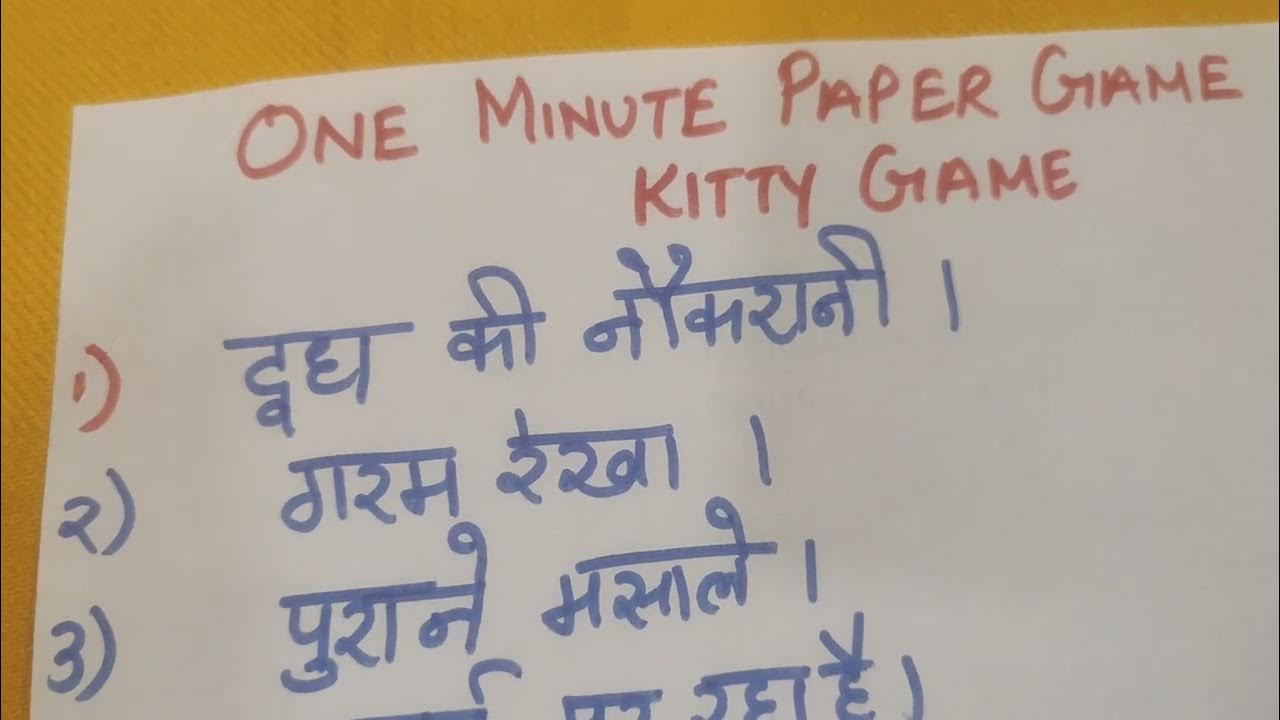 ONE MINUTE PAPER GAME
KITTY GAME
1) दूध की नौकरानी ।
२) गरम रेखा ।
3) पुराने मसाले ।
पर रहा है।